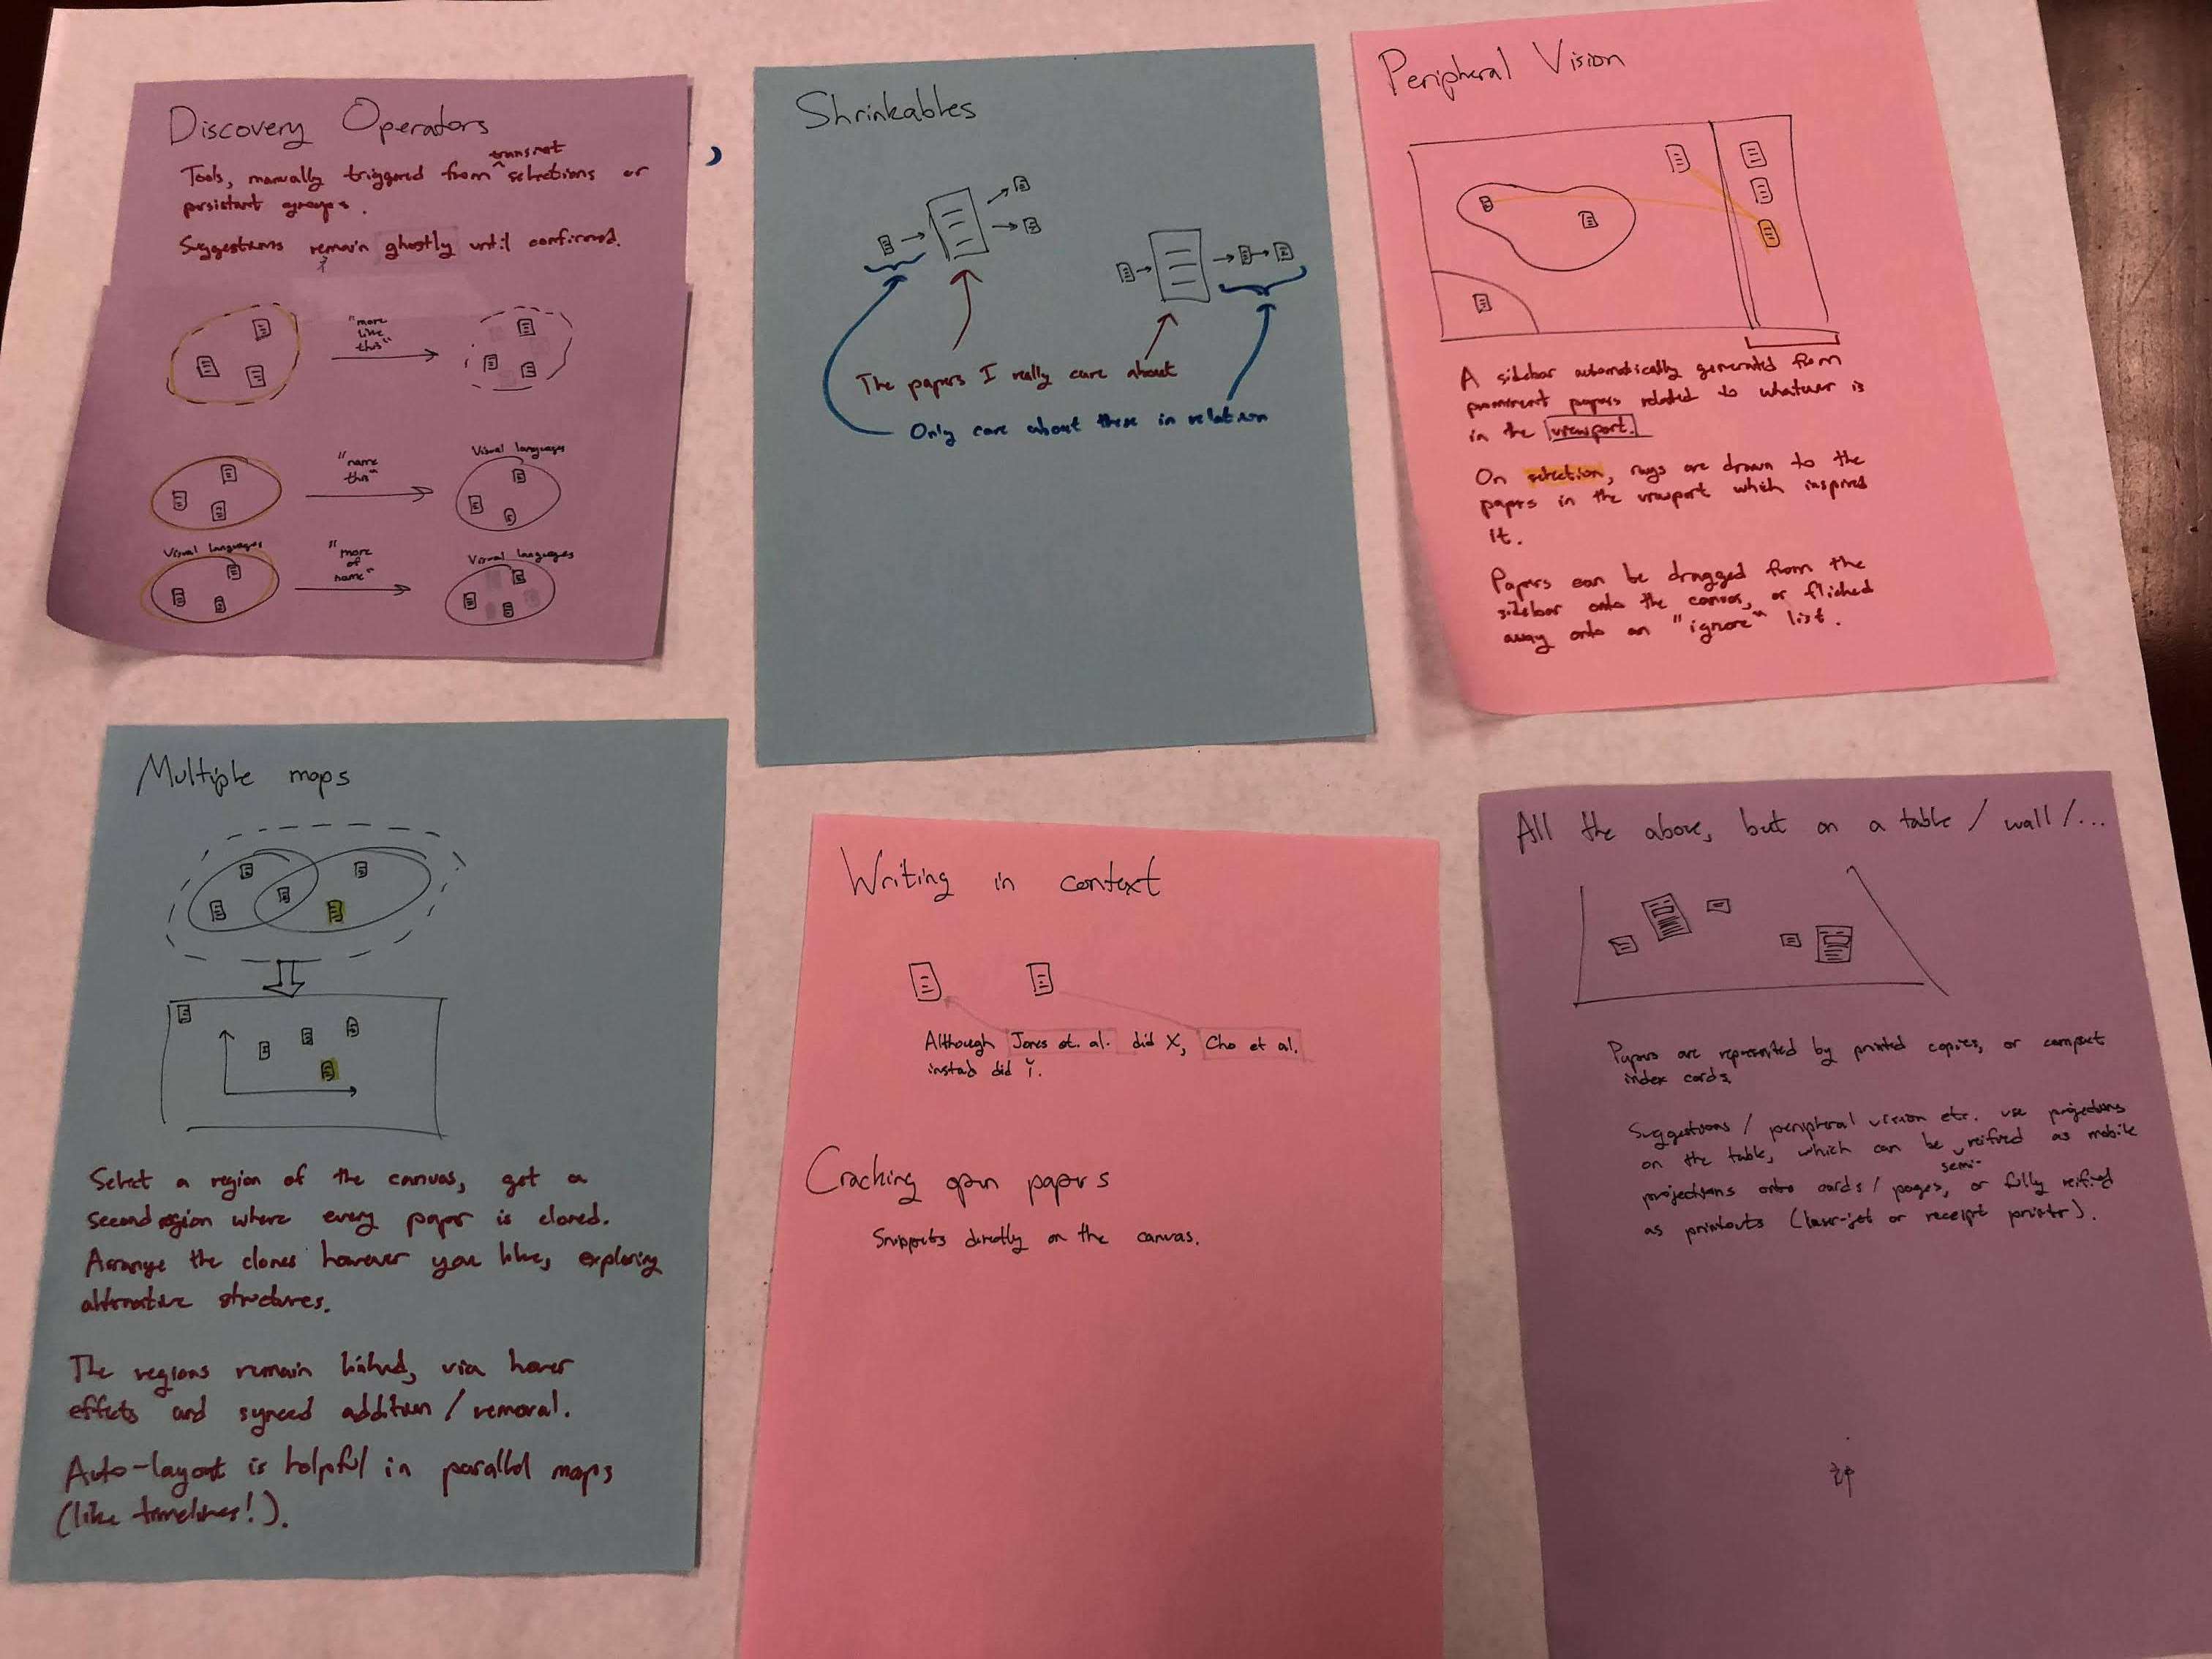 Discovery Operators
transient
Tools, manually triggered from ^ selections or
persistant groups.
Suggestions remain ghostly until confirmed.
"more
like
this"
"name
this"
Visual languages
Visual languages
"more
of
name"
Visual languages
Shrinkables
The papers I really care about
Only care about these in relation
Peripheral Vision
A sidebar automatically generated from
prominent papers related to whatever is
in the viewport.
On selection, rays are drawn to the
papers in the viewport which inspired
it.
Papers can be dragged from the
sidebar onto the canvas, or flicked
away onto an "ignore" list.
Multiple maps
Select a region of the canvas, get a
second region where every paper is cloned.
Arrange the clones however you like, exploring
alternative structures.
The regions remain linked, via hover
effects and synced addition / removal.
Auto-layout is helpful in parallel maps
(like timelines!).
Writing in context
Although Jones et. al. did X, Cho et al.
instead did Y.
Cracking open papers
Snippets directly on the canvas.
All the above, but on a table / wall /...
Papers are represented by printed copies, or compact
index cards.
Suggestions / peripheral vision etc. use projections
on the table, which can be reified as mobile
semi-
projections onto cards / pages, or fully reified
as printouts (laser-jet or receipt printer).